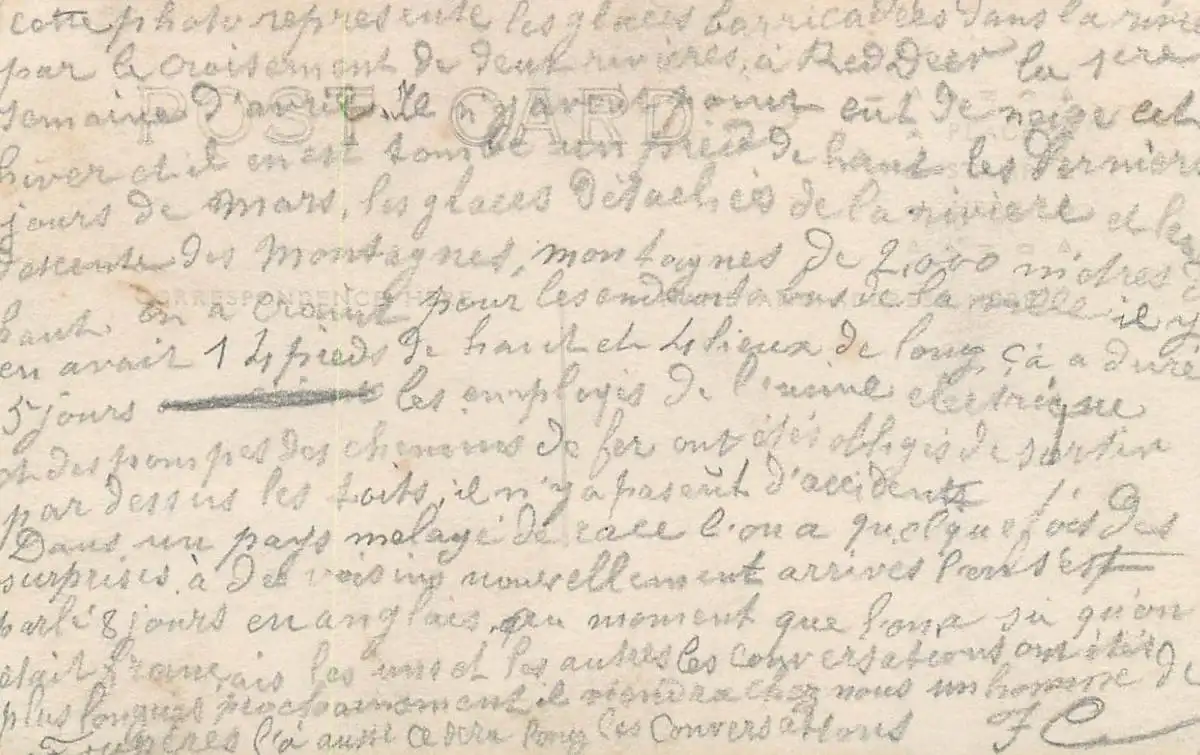 cette photo represente les glaces barricadées dans la rivière
par le croisement de deux rivières, à Red Deer la 1ere
semaine d'avril. Il n'y avait point eût de neige cet
hiver et il en est tombé un pied de haut les derniers
jours de Mars, les glaces détachées de la rivière et les
descente des Montagnes, montagnes de 2,000 mètres de
haut. on a craint pour les endroits bas de la ville il y
en avait 14 pieds de haut et 4 lieux de long, çà a duré
5 jours les employés de l'usine electrique
et des pompes des chemins de fer ont étés obligés de sortir
par dessus les toits, il n'y a pas eût d'accidents
Dans un pays melagé de race l'on a quelquefois des
surprises à des voisins nouvellement arrives l'on s'est
parlé 8 jours en anglais, au moment que l'on a su qu'on
etait français les uns et les autres les conversations ont étés
plus longues prochainement il viendra chez nous un homme de
l'à aussi ce dera long les conversations F C
POST CARD
CORRESPONDENCE HERE